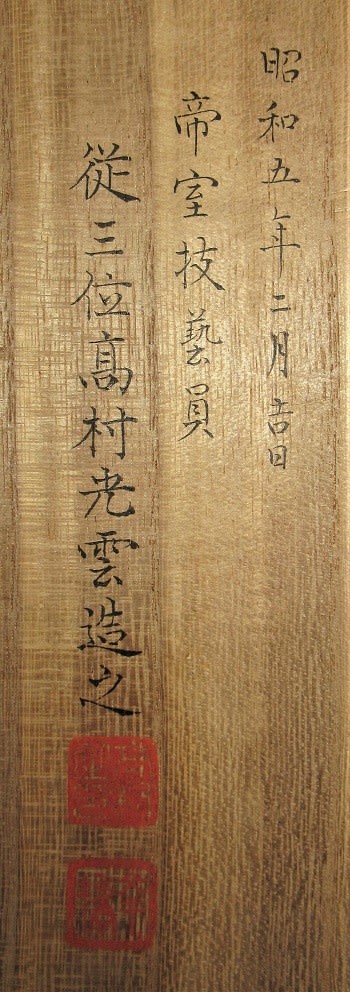 昭和五年二月吉日
帝室技藝員
従三位髙村光雲造之